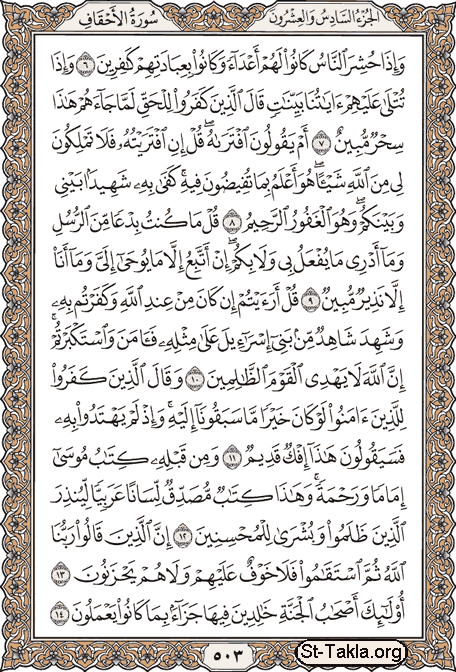 سُورَةُ الأَحْقَافِ الجُزْءُ السَّادِسُ وَالعِشْرُونَ
وَإِذَا حُشِرَ ٱلنَّاسُ كَانُوا۟ لَهُمْ أَعْدَآءً وَكَانُوا۟ بِعِبَادَتِهِمْ كَٰفِرِينَ ٦ وَإِذَا
تُتْلَىٰ عَلَيْهِمْ ءَايَٰتُنَا بَيِّنَٰتٍ قَالَ ٱلَّذِينَ كَفَرُوا۟ لِلْحَقِّ لَمَّا جَآءَهُمْ هَٰذَا
سِحْرٌ مُّبِينٌ ٧ أَمْ يَقُولُونَ ٱفْتَرَىٰهُ ۖ قُلْ إِنِ ٱفْتَرَيْتُهُۥ فَلَا تَمْلِكُونَ
لِى مِنَ ٱللَّهِ شَيْـًٔا ۖ هُوَ أَعْلَمُ بِمَا تُفِيضُونَ فِيهِ ۖ كَفَىٰ بِهِۦ شَهِيدًۢا بَيْنِى
وَبَيْنَكُمْ ۖ وَهُوَ ٱلْغَفُورُ ٱلرَّحِيمُ ٨ قُلْ مَا كُنتُ بِدْعًا مِّنَ ٱلرُّسُلِ
وَمَآ أَدْرِى مَا يُفْعَلُ بِى وَلَا بِكُمْ ۖ إِنْ أَتَّبِعُ إِلَّا مَا يُوحَىٰٓ إِلَىَّ وَمَآ أَنَا۠
إِلَّا نَذِيرٌ مُّبِينٌ ٩ قُلْ أَرَءَيْتُمْ إِن كَانَ مِنْ عِندِ ٱللَّهِ وَكَفَرْتُم بِهِۦ
وَشَهِدَ شَاهِدٌ مِّنۢ بَنِىٓ إِسْرَٰٓءِيلَ عَلَىٰ مِثْلِهِۦ فَـَٔامَنَ وَٱسْتَكْبَرْتُمْ ۖ
إِنَّ ٱللَّهَ لَا يَهْدِى ٱلْقَوْمَ ٱلظَّٰلِمِينَ ١٠ وَقَالَ ٱلَّذِينَ كَفَرُوا۟
لِلَّذِينَ ءَامَنُوا۟ لَوْ كَانَ خَيْرًا مَّا سَبَقُونَآ إِلَيْهِ ۚ وَإِذْ لَمْ يَهْتَدُوا۟ بِهِۦ
فَسَيَقُولُونَ هَٰذَآ إِفْكٌ قَدِيمٌ ١١ وَمِن قَبْلِهِۦ كِتَٰبُ مُوسَىٰٓ
إِمَامًا وَرَحْمَةً ۚ وَهَٰذَا كِتَٰبٌ مُّصَدِّقٌ لِّسَانًا عَرَبِيًّا لِّيُنذِرَ
ٱلَّذِينَ ظَلَمُوا۟ وَبُشْرَىٰ لِلْمُحْسِنِينَ ١٢ إِنَّ ٱلَّذِينَ قَالُوا۟ رَبُّنَا
ٱللَّهُ ثُمَّ ٱسْتَقَٰمُوا۟ فَلَا خَوْفٌ عَلَيْهِمْ وَلَا هُمْ يَحْزَنُونَ ١٣
أُو۟لَٰٓئِكَ أَصْحَٰبُ ٱلْجَنَّةِ خَٰلِدِينَ فِيهَا جَزَآءًۢ بِمَا كَانُوا۟ يَعْمَلُونَ ١٤
٥٠٣
St-Takla.org